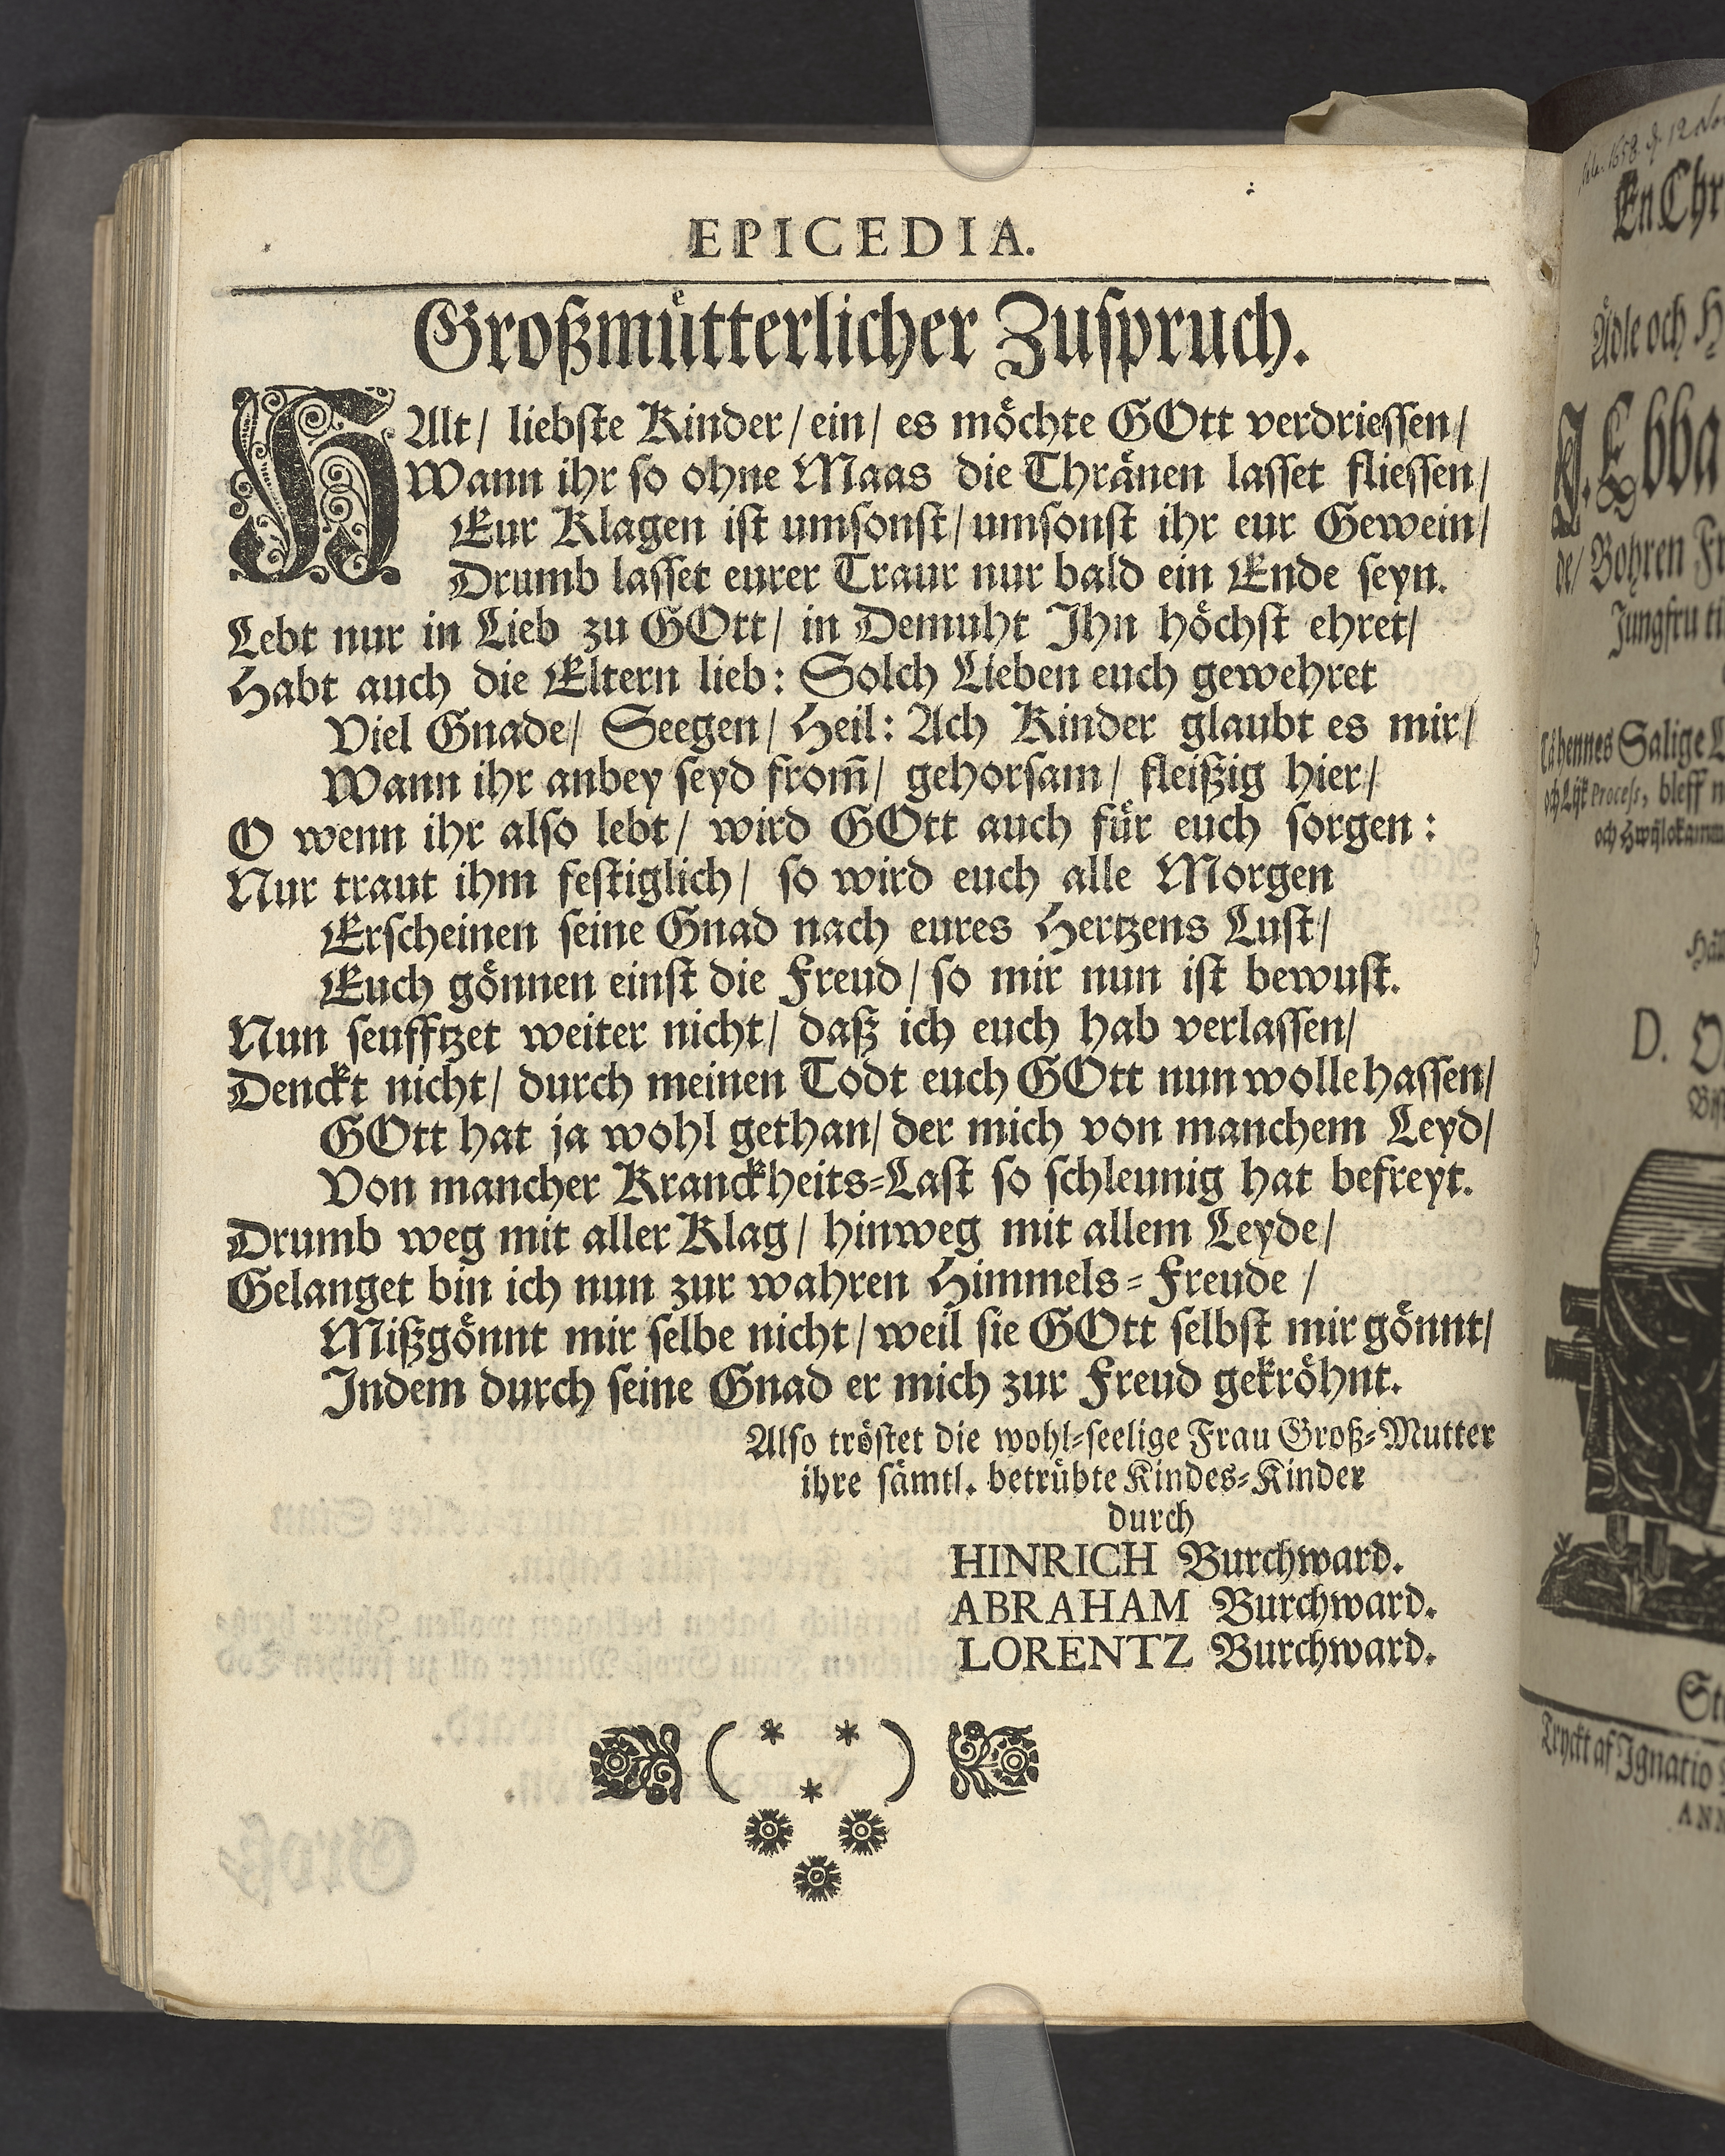 EPICEDIA.
Großmütterlicher Zuspruch.
HAlt/ liebste Kinder/ ein/ es möchte GOtt verdriessen/
Wann ihr so ohne Maas die Thränen lasset fliessen/
Eur Klagen ist umsonst/ umsonst ihr eur Gewein/
Drumb lasset eurer Traur nur bald ein Ende seyn.
Lebt nur in Lieb zu GOtt/ in Demuht Ihn höchst ehret/
Habt auch die Eltern lieb: Solch Lieben euch gewehret
Viel Gnade/ Seegen/ Heil: Ach Kinder glaubt es mir/
Wann ihr anbey seyd from̃/ gehorsam/ fleißig hier/
O wenn ihr also lebt/ wird GOtt auch für euch sorgen:
Nur traut ihm festiglich/ so wird euch alle Morgen
Erscheinen seine Gnad nach eures Hertzens Lust/
Euch gönnen einst die Freud/ so mir nun ist bewust.
Nun seufftzet weiter nicht/ daß ich euch hab verlassen/
Denckt nicht/ durch meinen Todt euch GOtt nun wolle hassen/
GOtt hat ja wohl gethan/ der mich von manchem Leyd/
Von mancher Kranckheits-Last so schleunig hat befreyt.
Drumb weg mit aller Klag/ hinweg mit allem Leyde/
Gelanget bin ich nun zur wahren Himmels-Freude/
Mißgönnt mir selbe nicht/ weil sie GOtt selbst mir gönnt/
Indem durch seine Gnad er mich zur Freud gekröhnt.
Also tröstet die wohl-seelige Frau Groß-Mutter
ihre sämtl. betrübte Kindes-Kinder
durch
HINRICH Burchward.
ABRAHAM Burchward.
LORENTZ Burchward.
En Chr
Ädle och H
J. Ebba
de/ Bohren Fr
Jungfru ti
Salige
och Lijk Process, bleff n
D. O
St
Tryckt af Ignatio
ANN